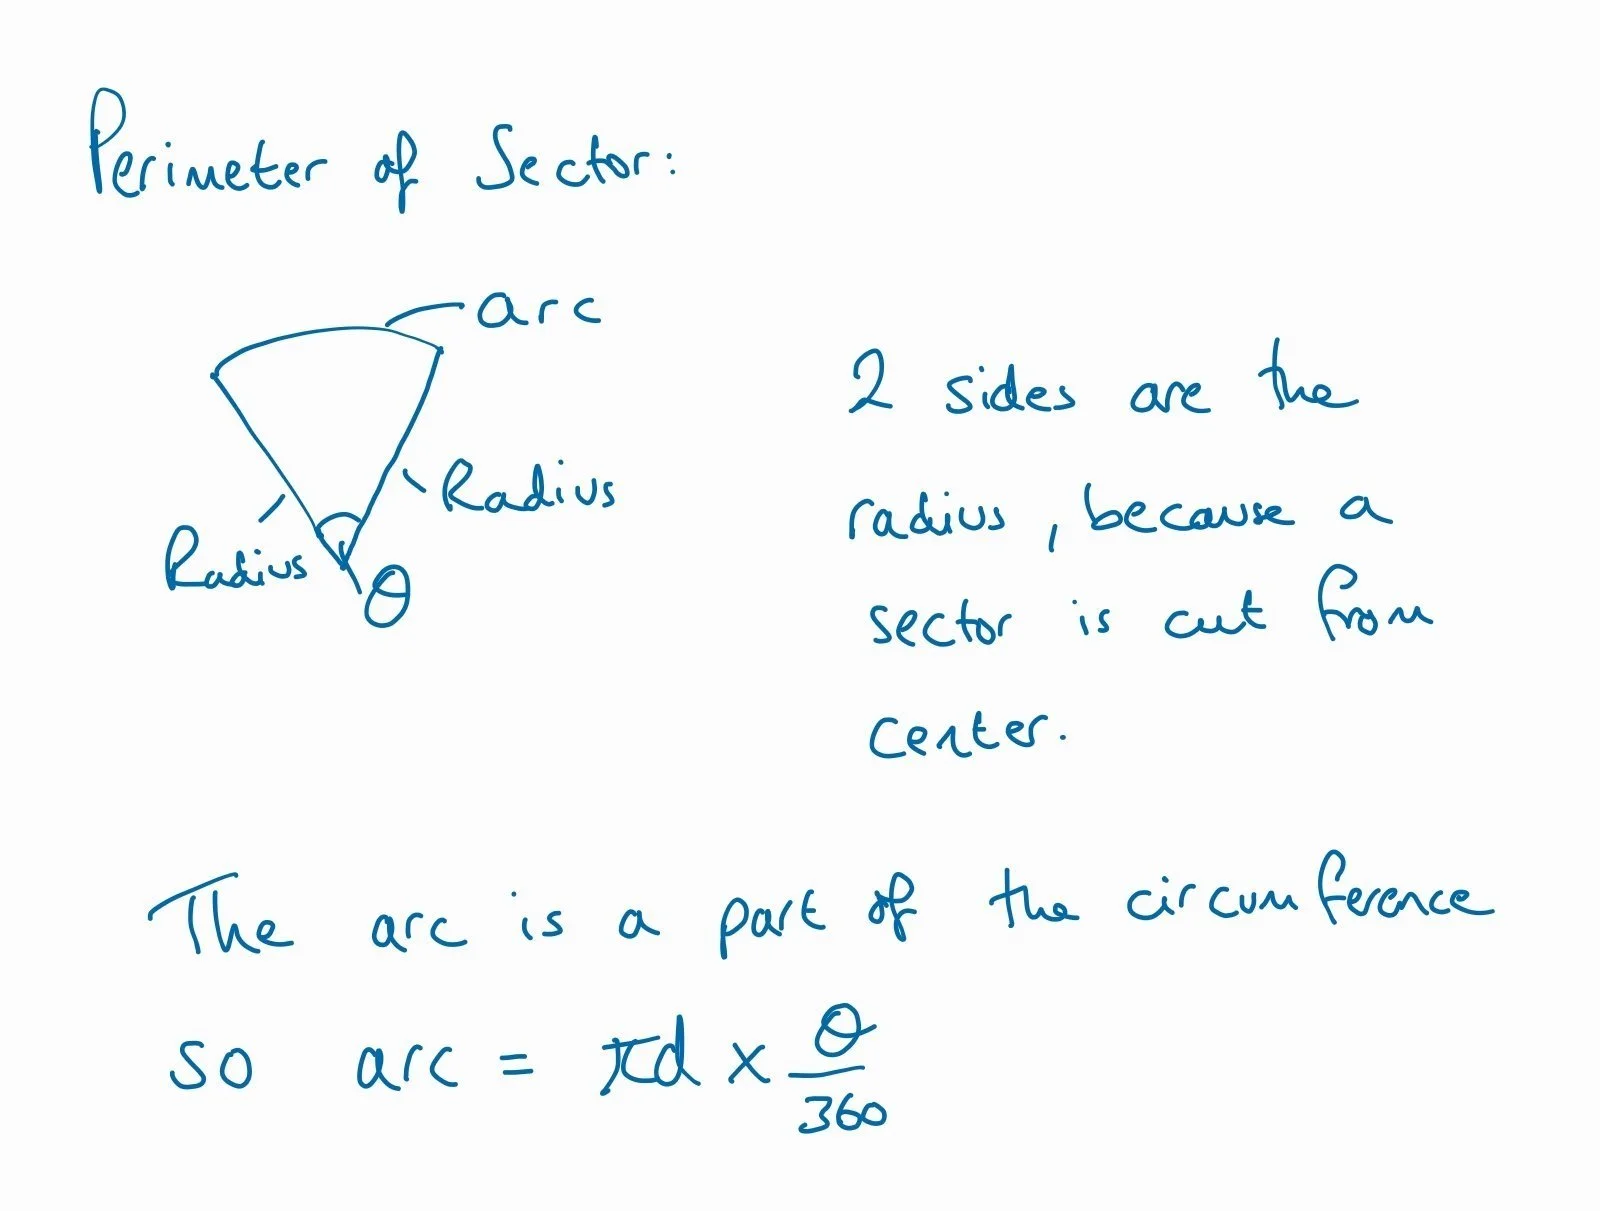 Perimeter of Sector:
arc
Radius
Radius
θ
2 sides are the
radius, because a
sector is cut from
center.
The arc is a part of the circumference
so arc = πd × θ/360